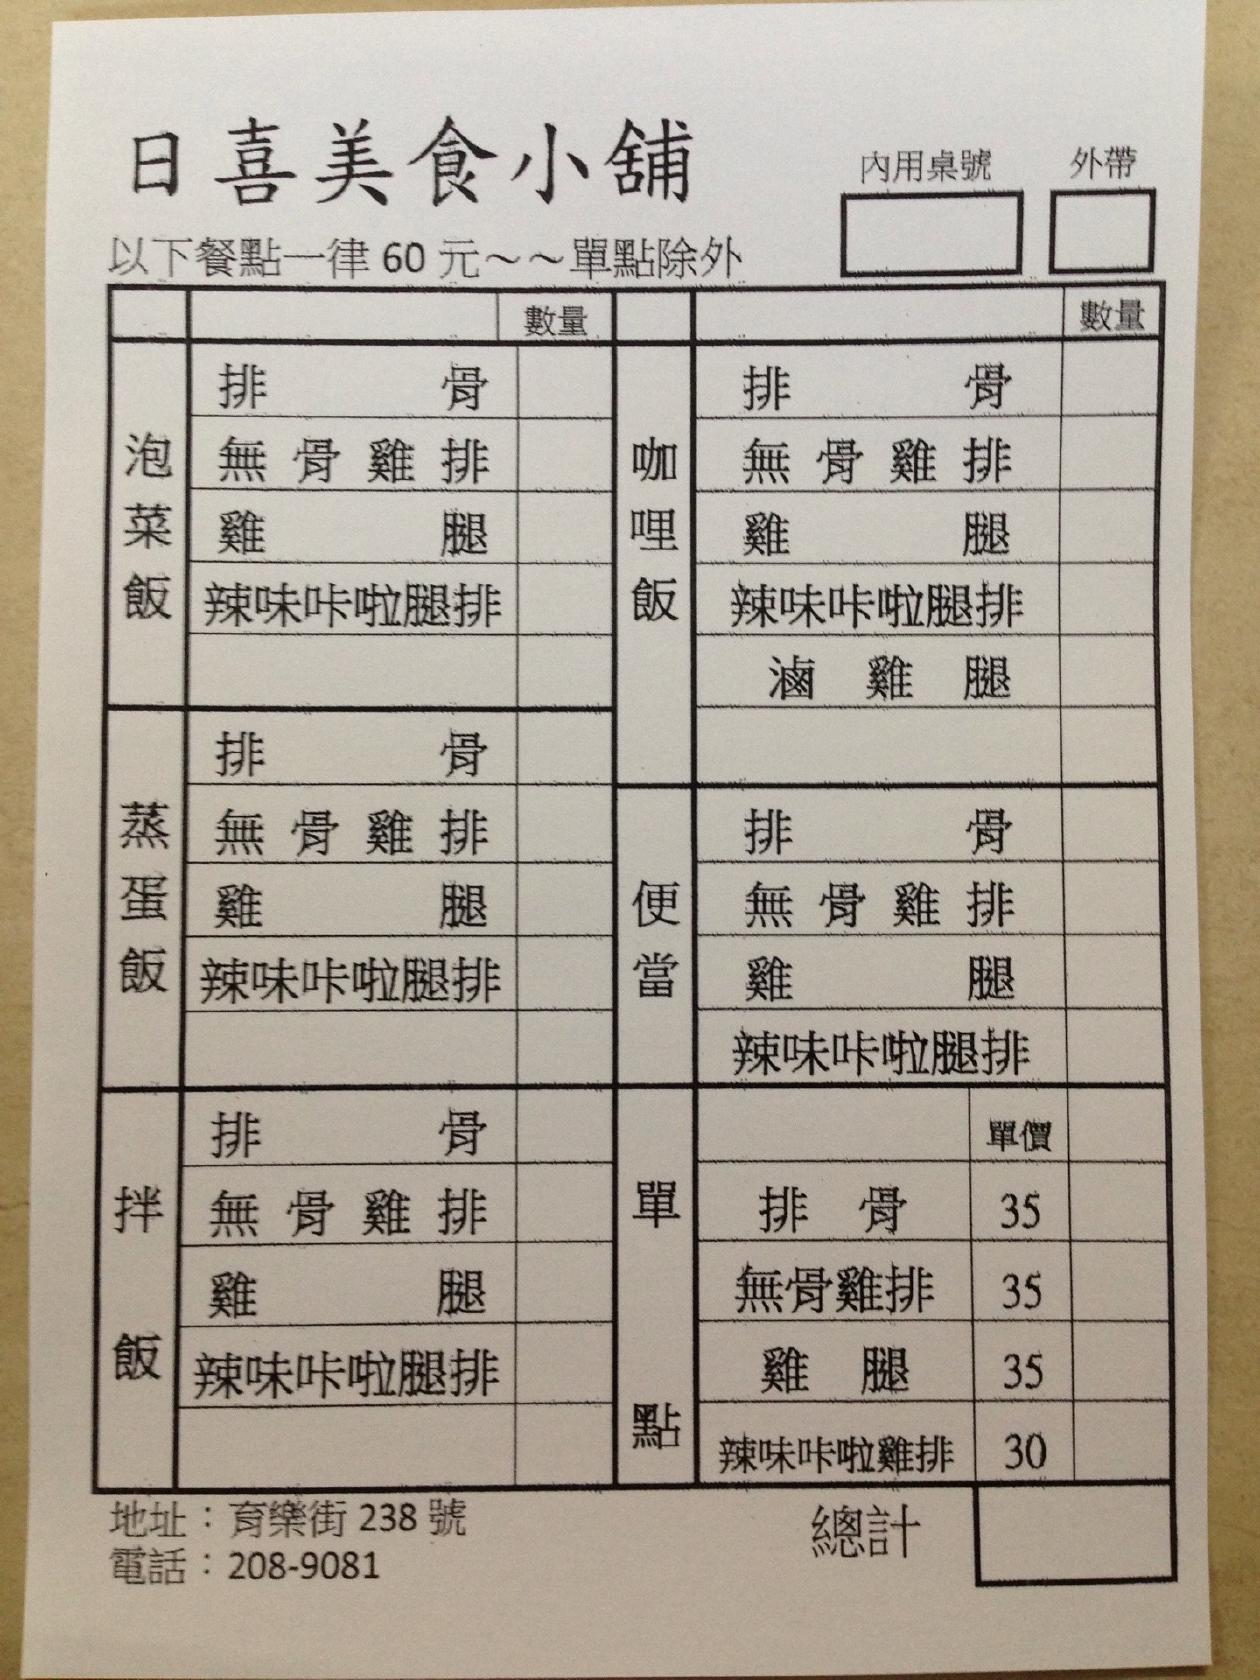 日喜美食小舖
內用桌號
外帶
以下餐點一律 60 元～～單點除外
數量
泡菜飯
排骨
無骨雞排
雞腿
辣味咔啦腿排
蒸蛋飯
排骨
無骨雞排
雞腿
辣味咔啦腿排
拌飯
排骨
無骨雞排
雞腿
辣味咔啦腿排
數量
咖哩飯
排骨
無骨雞排
雞腿
辣味咔啦腿排
滷雞腿
便當
排骨
無骨雞排
雞腿
辣味咔啦腿排
單點
單價
排骨 35
無骨雞排 35
雞腿 35
辣味咔啦雞排 30
地址：育樂街 238 號
電話：208-9081
總計